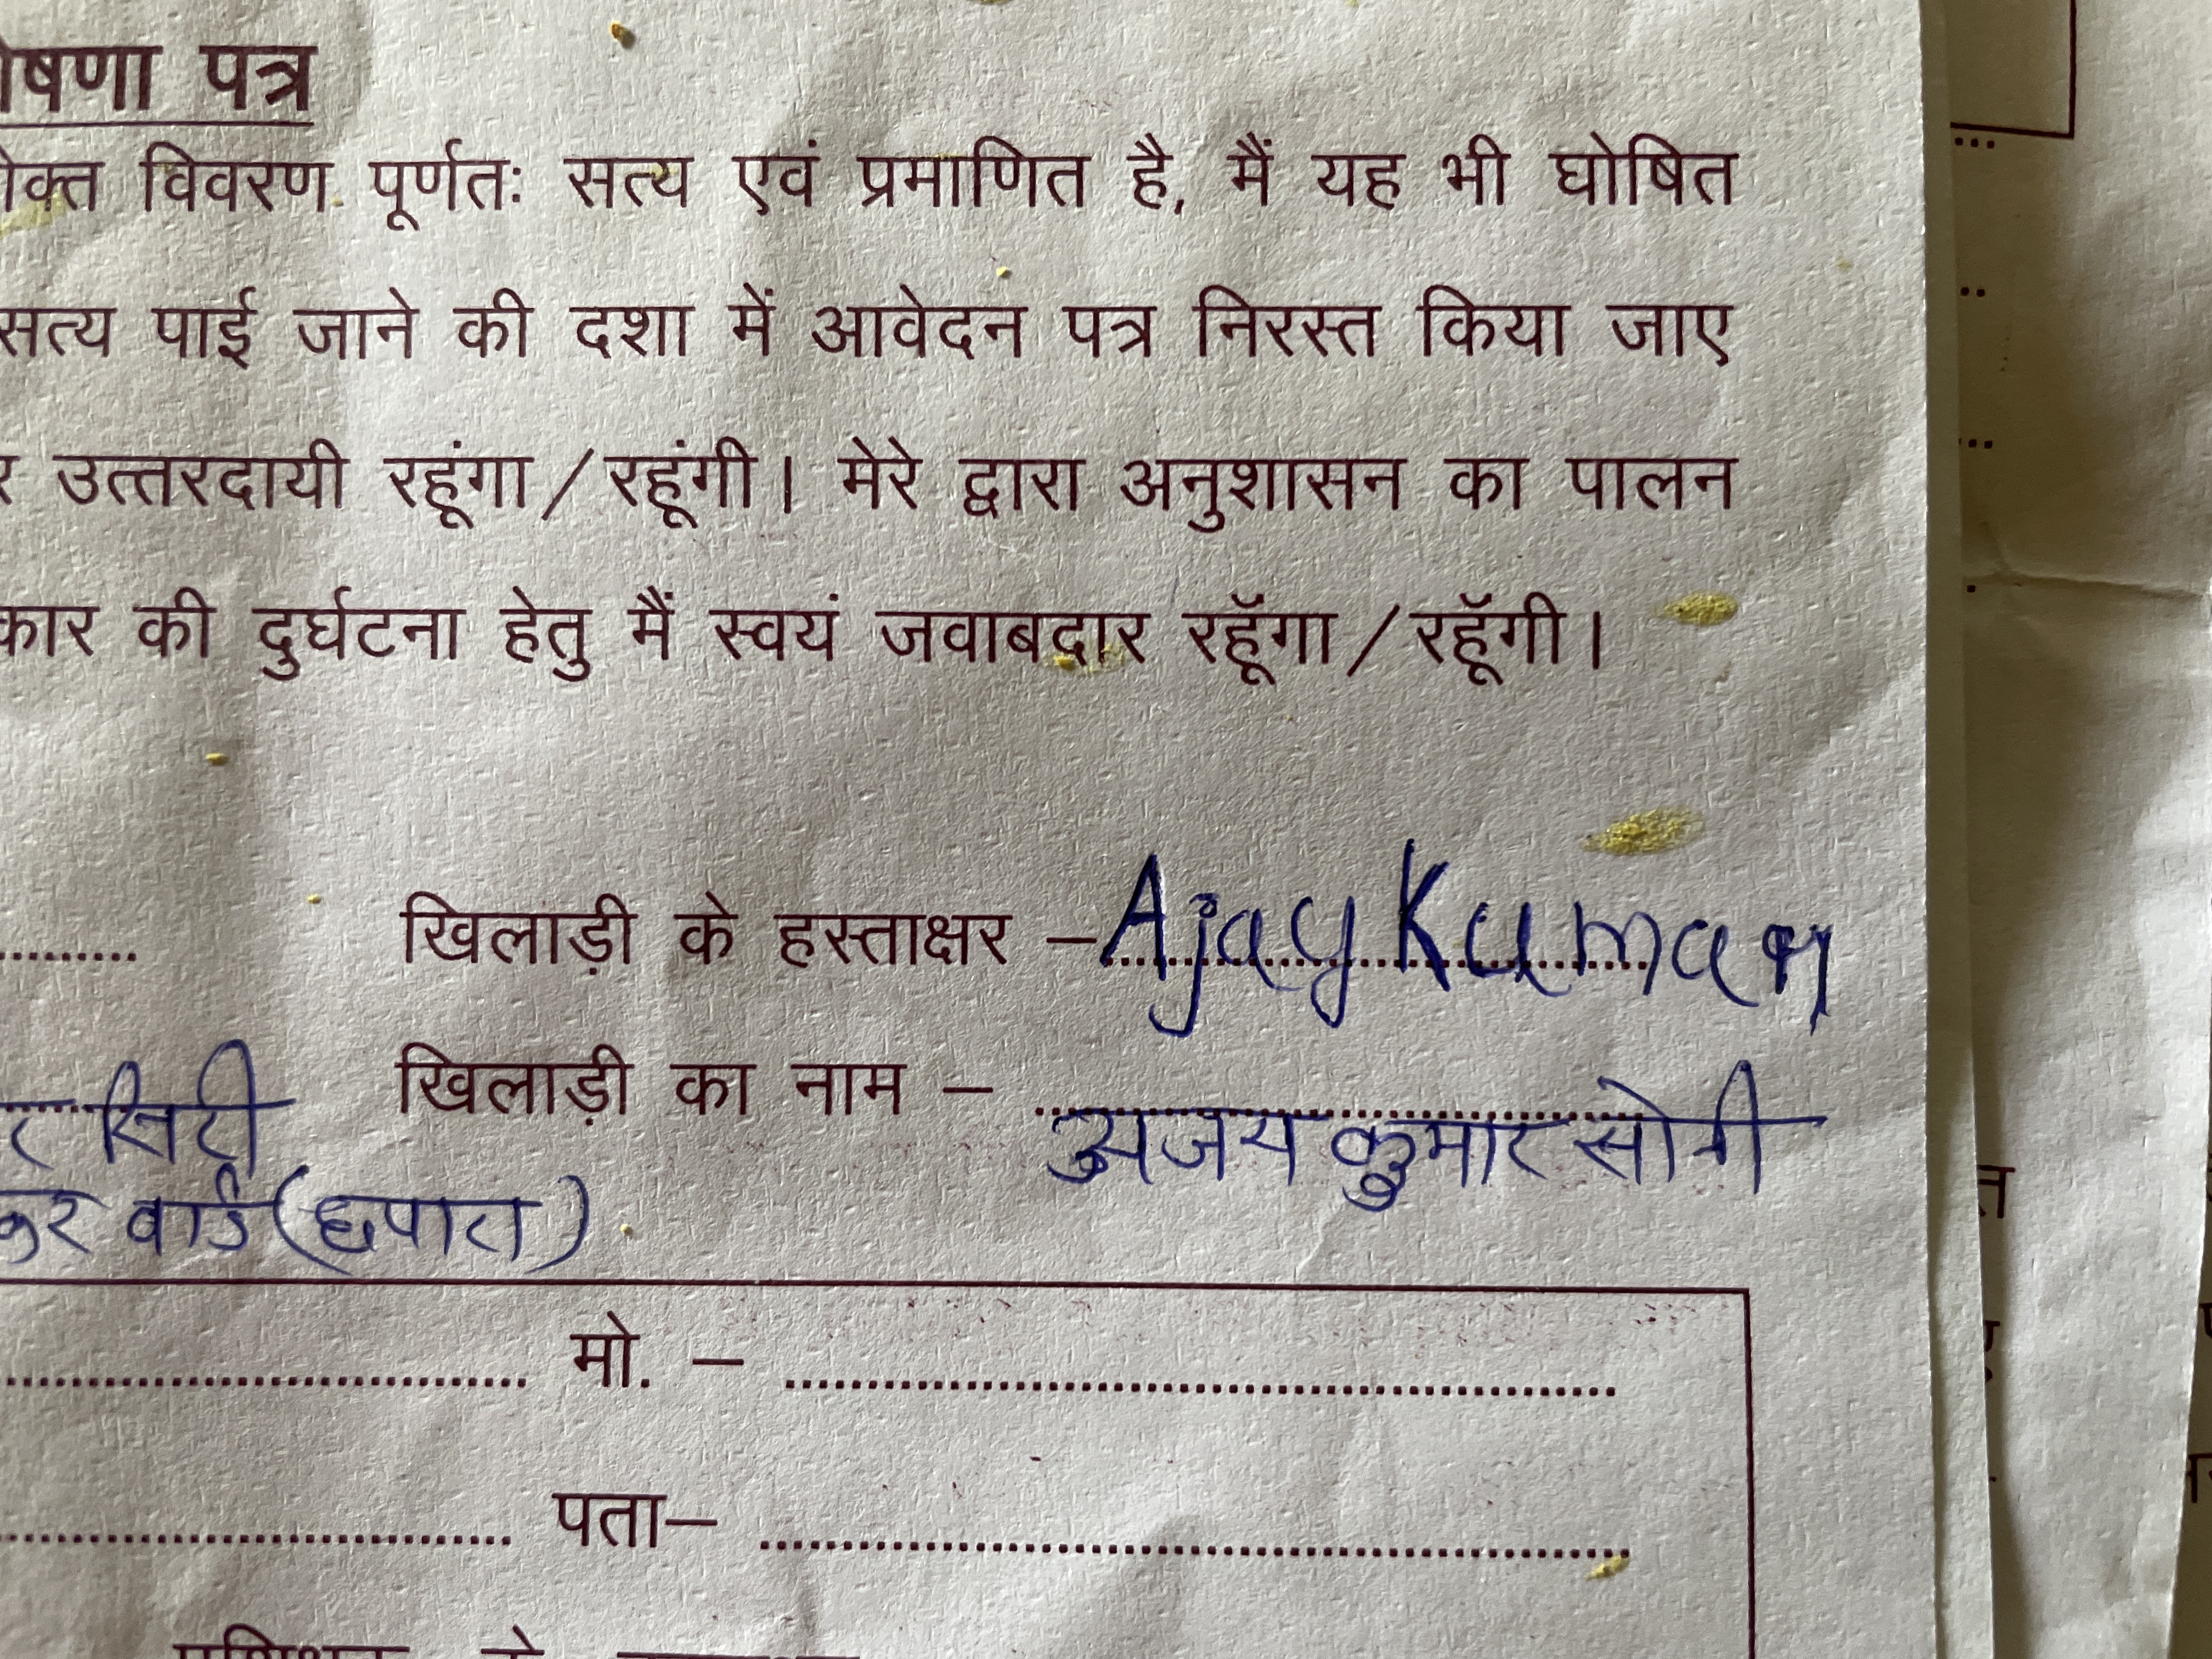 षणा पत्र
क्त विवरण पूर्णतः सत्य एवं प्रमाणित है, मैं यह भी घोषित
सत्य पाई जाने की दशा में आवेदन पत्र निरस्त किया जाए
र उत्तरदायी रहूंगा/रहूंगी। मेरे द्वारा अनुशासन का पालन
कार की दुर्घटना हेतु मैं स्वयं जवाबदार रहूॅगा/रहूॅगी।
खिलाड़ी के हस्ताक्षर – Ajay Kumar
खिलाड़ी का नाम – अजय कुमार सोनी
र सिटी
वार्ड (छपारा)
मो. –
पता–